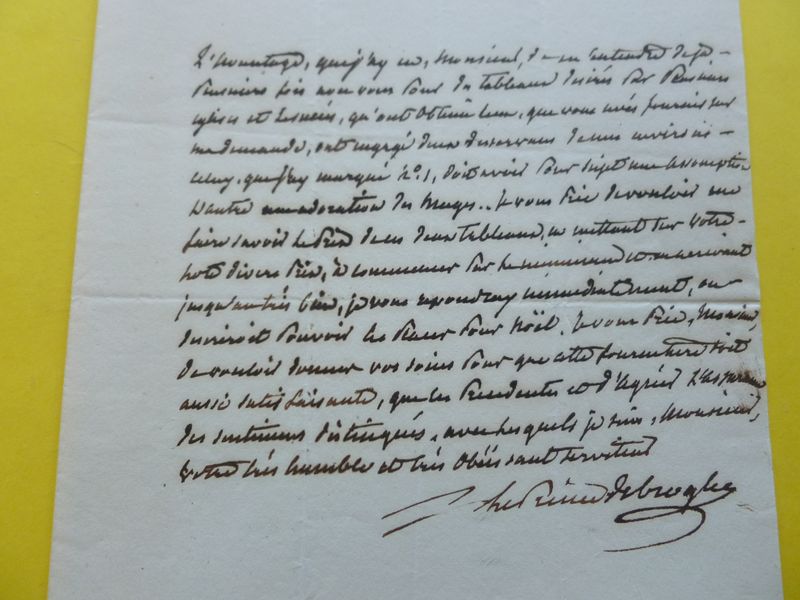 L'avantage, que j'ay eu, Monsieur, de m'entendre déja
plusieurs fois avec vous pour des tableaux desirés par plusieurs
églises et qu'ont obtenu ceux, que vous avés fournis sur
ma demande, ont engagé deux
celuy, que j'ay marqué N.º 1, doit avoir pour sujet une assomption
L'autre une adoration des Mages.. Je vous prie de vouloir me
faire savoir le prix de ces deux tableaux, en mettant sur votre
note divers prix, à commencer par le et en arrivant
jusqu'au très bien, je vous repondray immédiatement, on
desireroit pouvoir les placer pour Noël. Je vous prie, Monsieur,
de vouloir donner vos soins pour que cette fourniture soit
aussi satisfaisante, que les précédentes et d'agréer l'assurance
des sentimens distingués, avec lesquels je suis, Monsieur,
votre très humble et très obéissant serviteur
le Prince de broglie